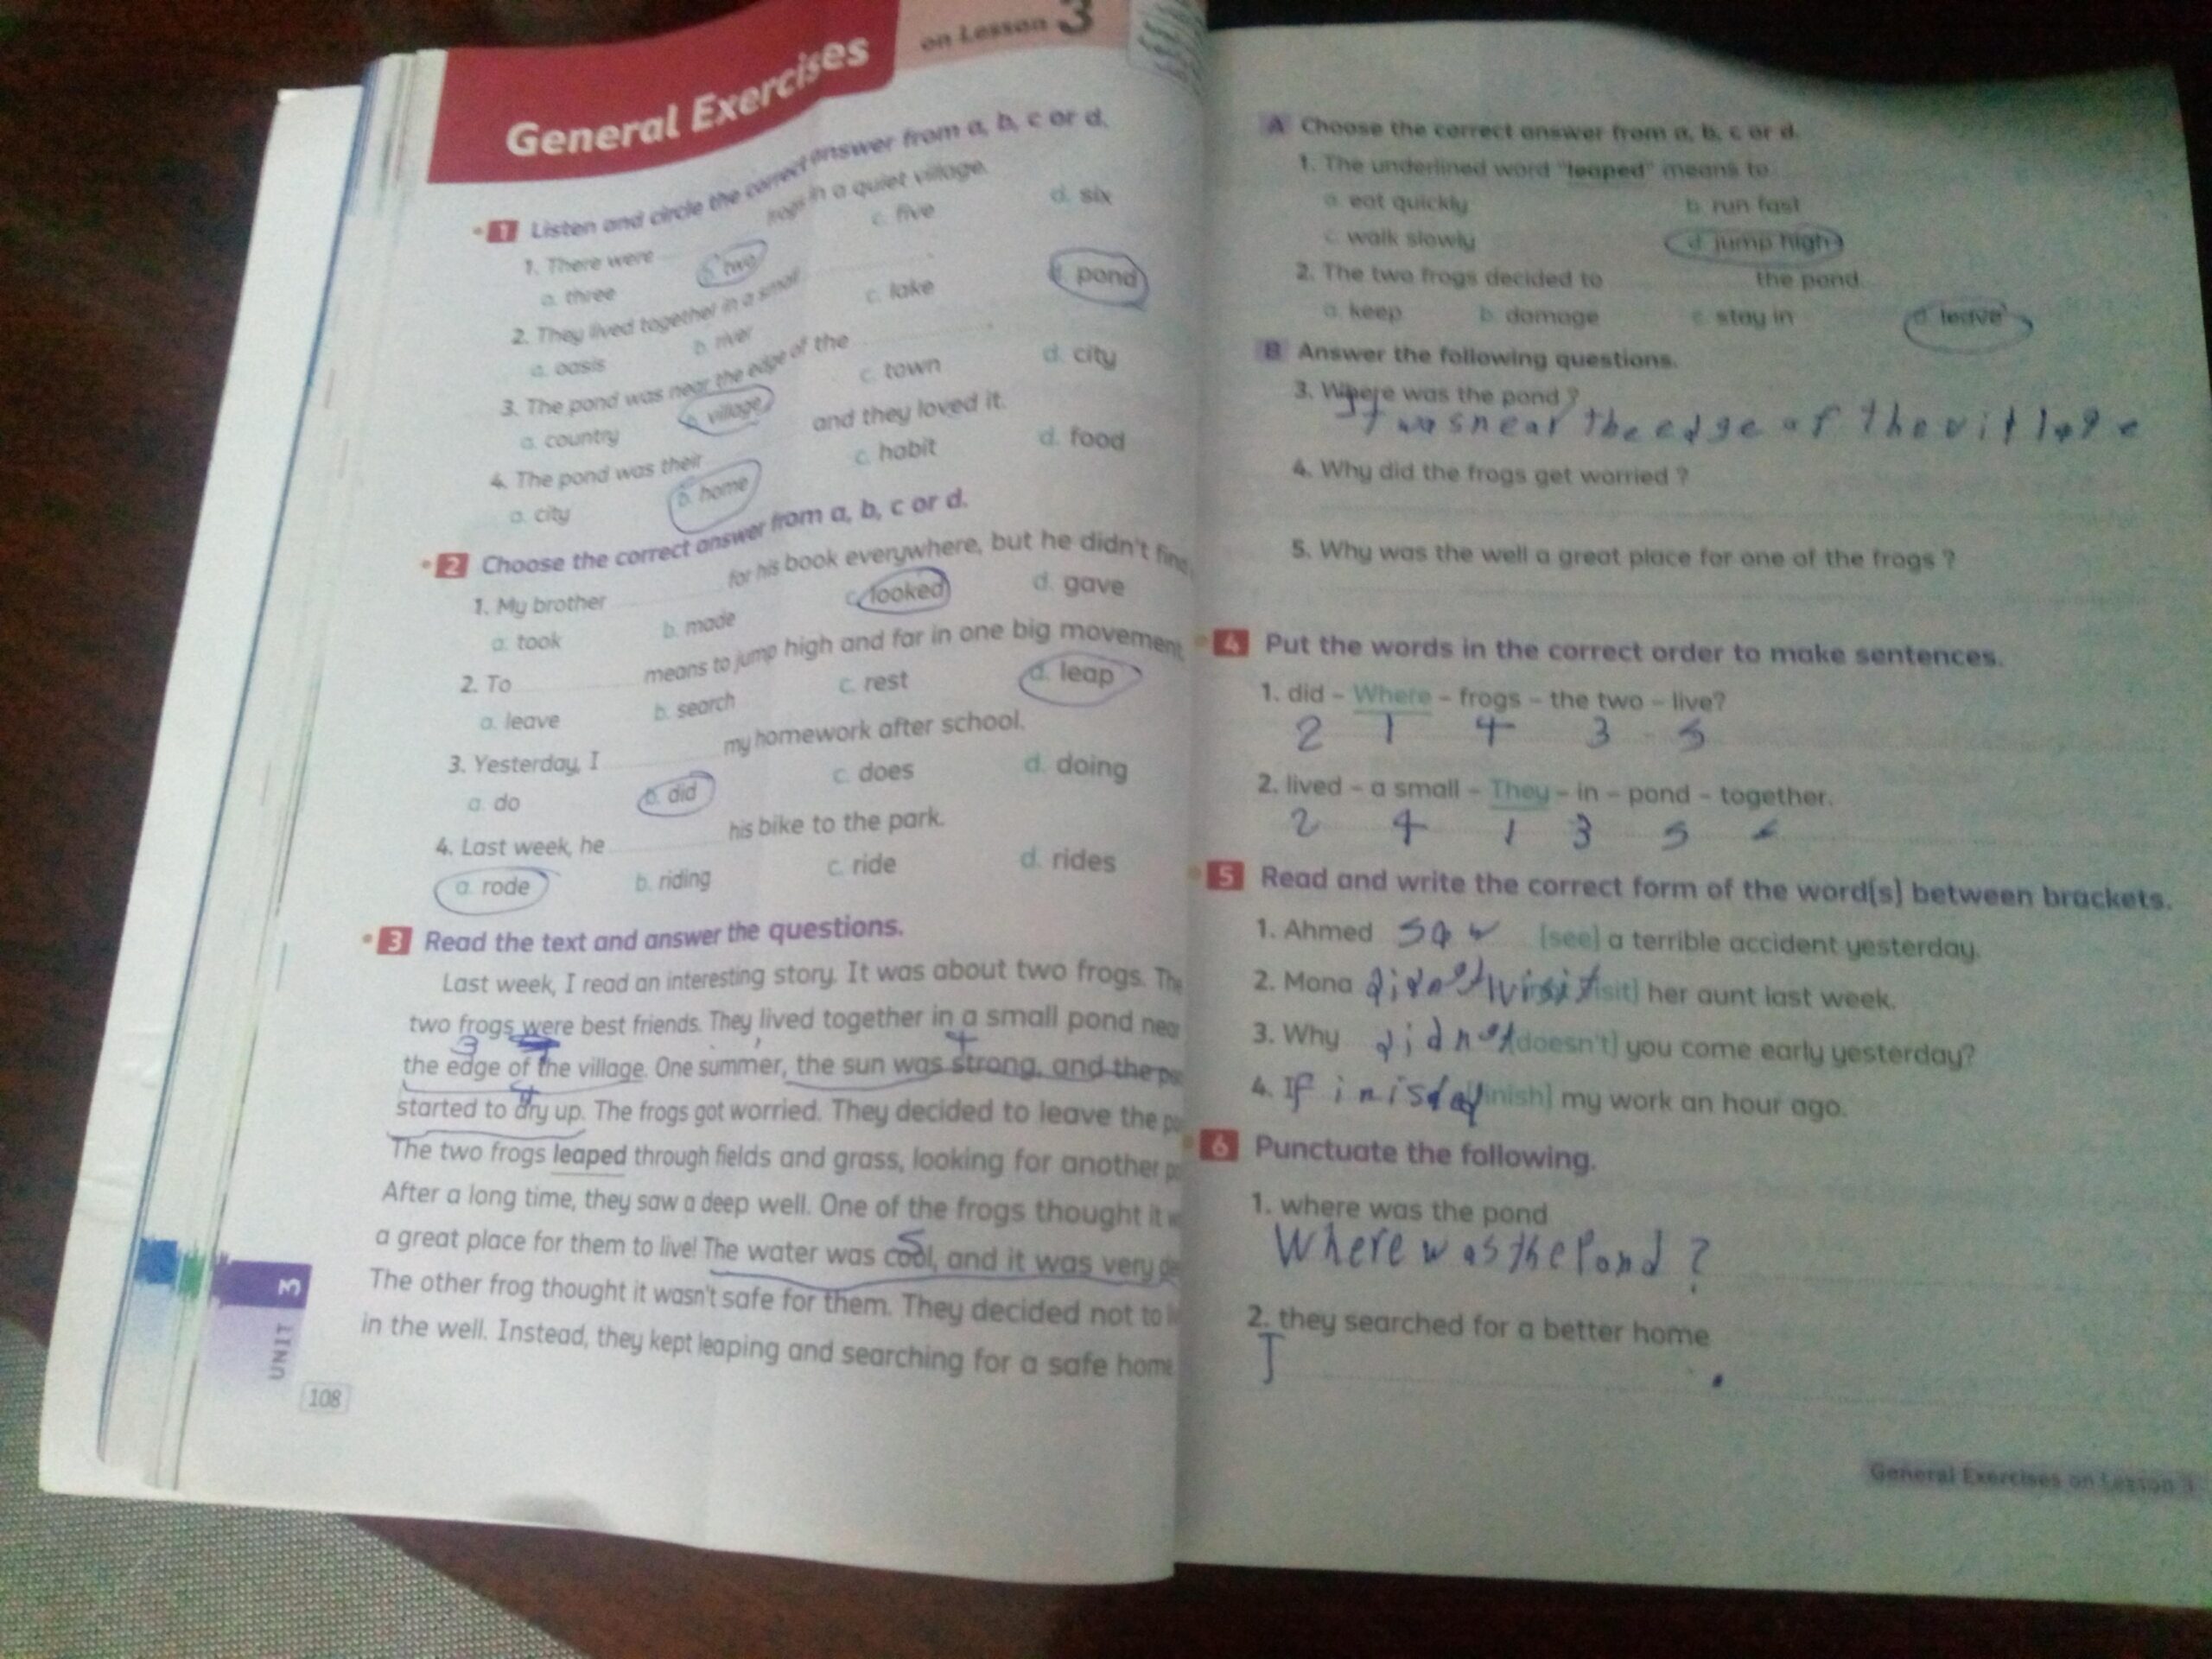 General Exercises on Lesson 3
1 Listen and circle the correct answer from a, b, c or d.
1. There were frogs in a quiet village.
a. three b. two c. five d. six
2. They lived together in a small
a. oasis b. river c. lake d. pond
3. The pond was near the edge of the
a. country b. village c. town d. city
4. The pond was their and they loved it.
a. city b. home c. habit d. food
2 Choose the correct answer from a, b, c or d.
1. My brother for his book everywhere, but he didn't find
a. took b. made c. looked d. gave
2. To means to jump high and far in one big movement
a. leave b. search c. rest d. leap
3. Yesterday, I my homework after school.
a. do b. did c. does d. doing
4. Last week, he his bike to the park.
a. rode b. riding c. ride d. rides
3 Read the text and answer the questions.
Last week, I read an interesting story. It was about two frogs. The
two frogs were best friends. They lived together in a small pond near
3 4
the edge of the village. One summer, the sun was strong, and the
4
started to dry up. The frogs got worried. They decided to leave the
The two frogs leaped through fields and grass, looking for another
After a long time, they saw a deep well. One of the frogs thought it
5
a great place for them to live! The water was cool, and it was very
The other frog thought it wasn't safe for them. They decided not to
in the well. Instead, they kept leaping and searching for a safe home
UNIT 3
108
A Choose the correct answer from a, b, c or d.
1. The underlined word "leaped" means to
a. eat quickly b. run fast
c. walk slowly d. jump high
2. The two frogs decided to the pond
a. keep b. damage c. stay in d. leave
B Answer the following questions.
3. Where was the pond ?
It was near the edge of the village
4. Why did the frogs get worried ?
5. Why was the well a great place for one of the frogs ?
4 Put the words in the correct order to make sentences.
1. did – Where – frogs – the two – live?
2 1 4 3 5
2. lived – a small – They – in – pond – together.
2 4 1 3 5 6
5 Read and write the correct form of the word(s) between brackets.
1. Ahmed saw [see] a terrible accident yesterday.
2. Mona her aunt last week.
3. Why didnot [doesn't] you come early yesterday?
4. I my work an hour ago.
6 Punctuate the following.
1. where was the pond
Where was the Pond ?
2. they searched for a better home
T .
General Exercises on Lesson 3